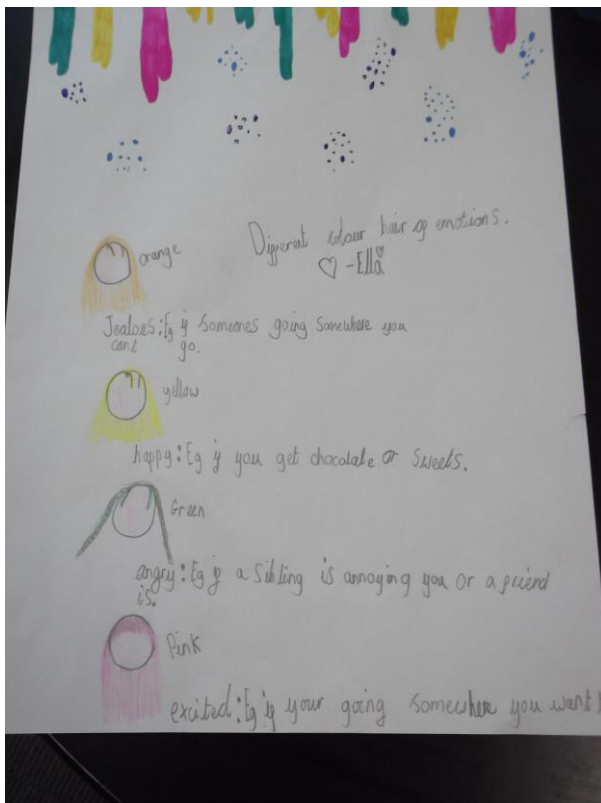 Different colour hair of emotions.
♡ -Ella
orange
Jealoes: Eg if someones going somewhere you
cant go.
yellow
happy: Eg if you get chocolate or sweets.
Green
angry: Eg if a sibling is annoying you or a friend
is.
Pink
excited: Eg if your going somewhere you want